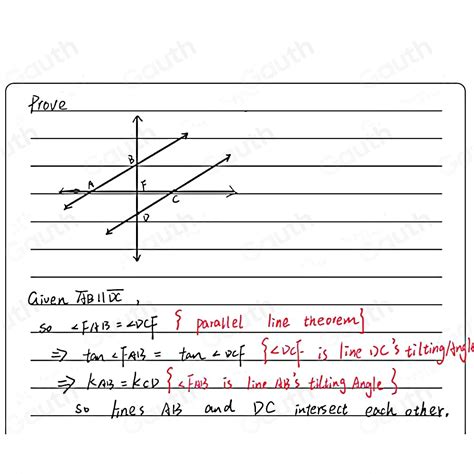 Prove
B
A F C
D
Given AB∥DC,
so ∠FAB = ∠DCF { parallel line theorem}
⇒ tan ∠FAB = tan ∠DCF {∠DCF is line DC's tilting Angle
⇒ KAB = KCD {∠FAB is line AB's tilting Angle }
so lines AB and DC intersect each other.
Gauth